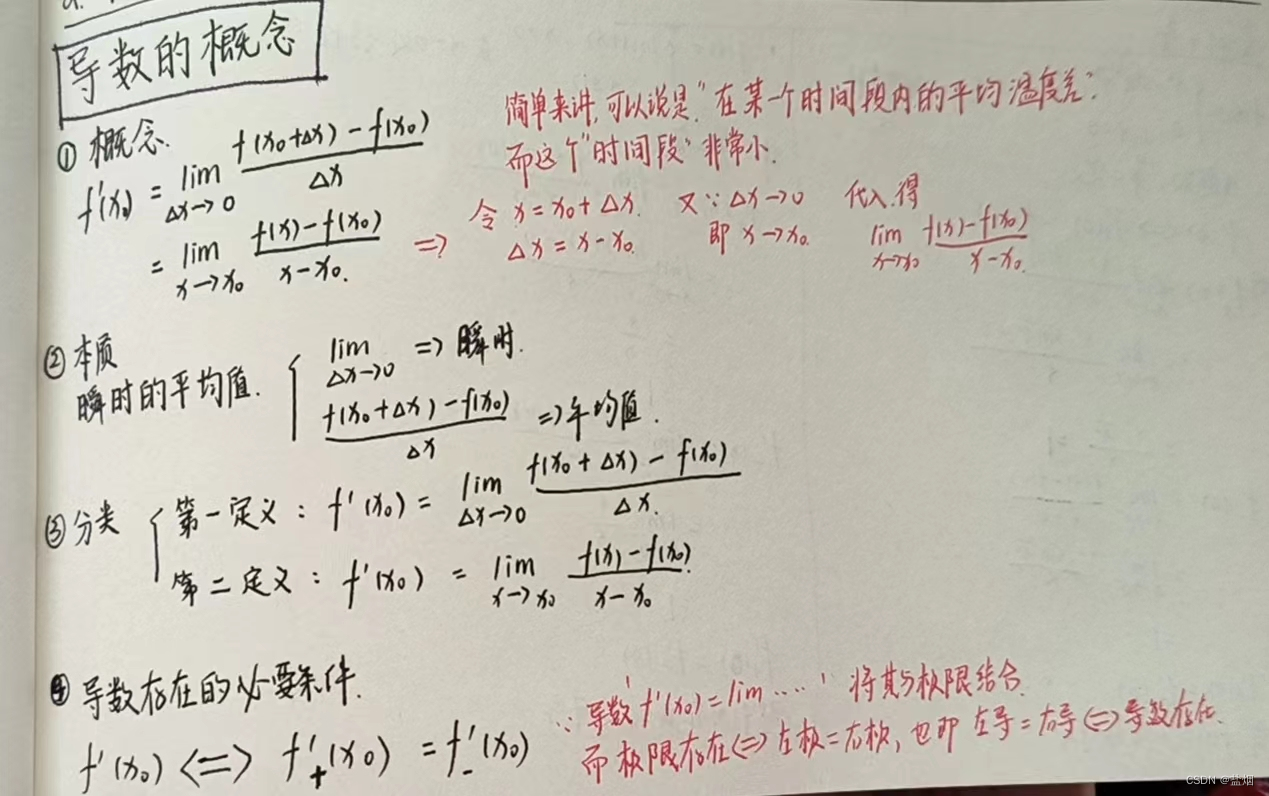 导数的概念
① 概念.
f'(x₀) = lim Δx→0 f(x₀+Δx)-f(x₀) / Δx
= lim x→x₀ f(x)-f(x₀) / x-x₀. ⇒
简单来讲,可以说是"在某一个时间段内的平均温度差".
而这个"时间段"非常小.
令 x = x₀ + Δx. 又∵ Δx→0 代入得
Δx = x-x₀. 即 x→x₀. lim x→x₀ f(x)-f(x₀) / x-x₀.
② 本质
瞬时的平均值.
lim Δx→0 ⇒ 瞬时.
f(x₀+Δx)-f(x₀) / Δx ⇒ 平均值.
③ 分类
第一定义: f'(x₀) = lim Δx→0 f(x₀+Δx) - f(x₀) / Δx.
第二定义: f'(x₀) = lim x→x₀ f(x)-f(x₀) / x-x₀
④ 导数存在的必要条件.
f'(x₀) <=> f'₊(x₀) = f'₋(x₀)
∵ 导数'f'(x₀) = lim ……' 将其与极限结合.
而极限存在<=>左极=右极, 也即 左导=右导<=>导数存在.
CSDN @盐烟